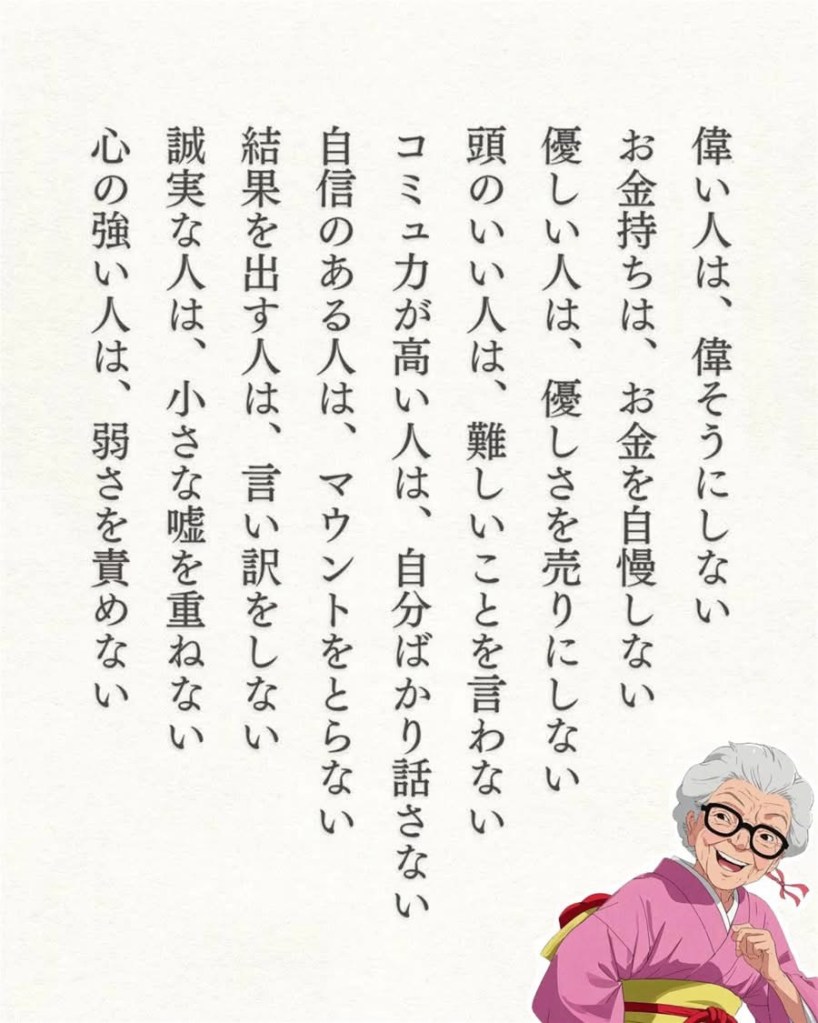 偉い人は、偉そうにしない
お金持ちは、お金を自慢しない
優しい人は、優しさを売りにしない
頭のいい人は、難しいことを言わない
コミュ力が高い人は、自分ばかり話さない
自信のある人は、マウントをとらない
結果を出す人は、言い訳をしない
誠実な人は、小さな嘘を重ねない
心の強い人は、弱さを責めない